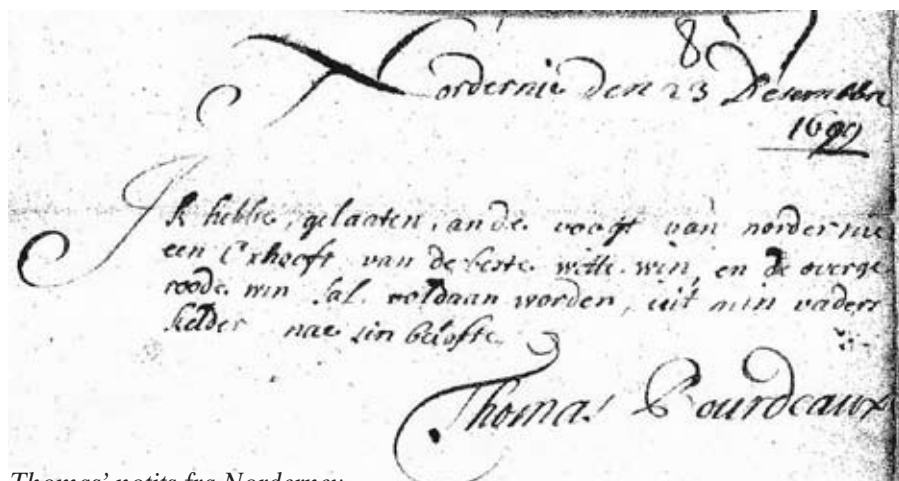 8
Nordernie den 23 Desember
1699
Ik hebbe, gelaaten, an de voogt van nordernie
een Oxhooft van de beste witte win, en de overge
roode win sal voldaan worden, uit min vaders
kelder nae sin belofte
Thomas Bourdeaux
Thomas' notits fra Norderney